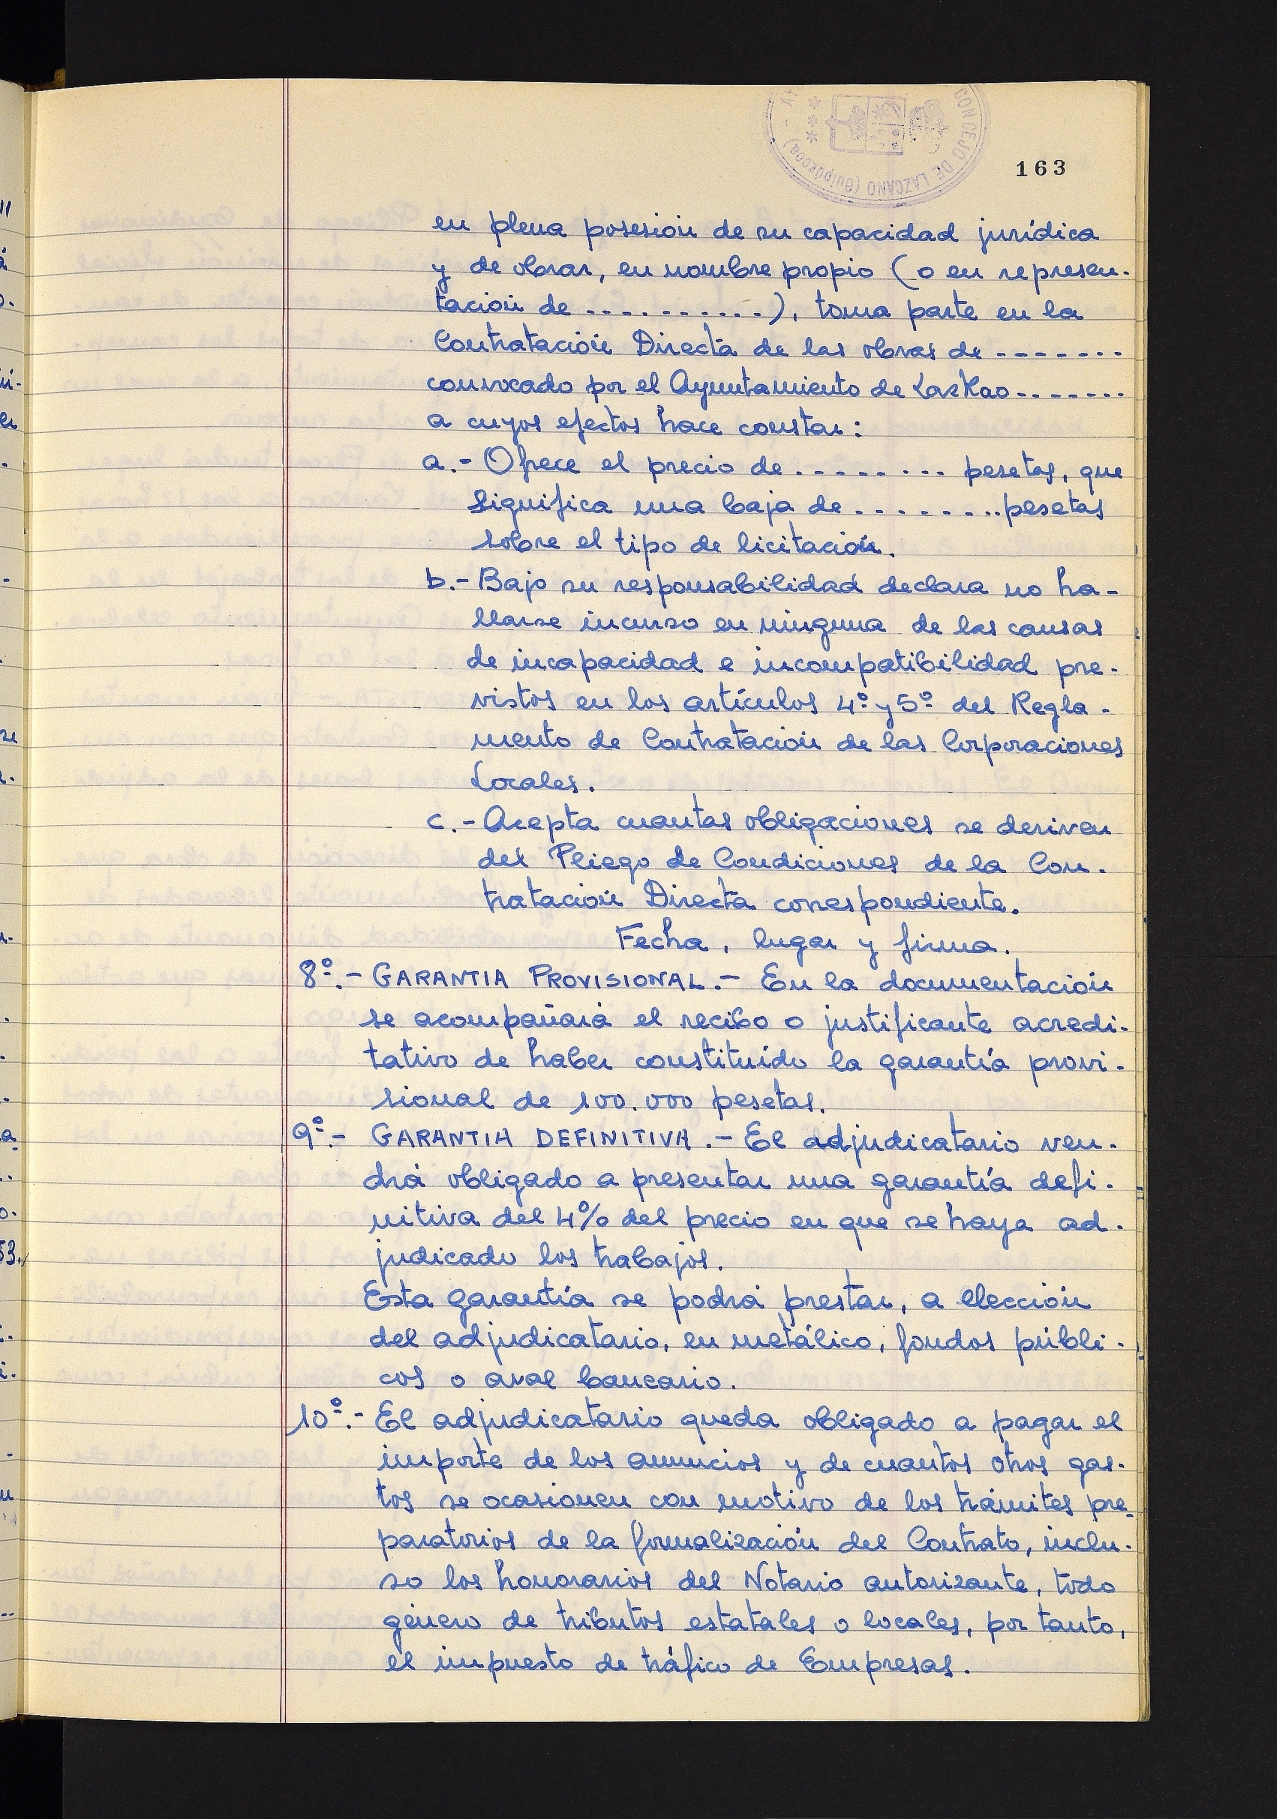 CONCEJO DE LAZCANO (Guipúzcoa)
163
en plena posesión de su capacidad jurídica
y de obrar, en nombre propio (o en represen-
tación de ..........), toma parte en la
Contratación Directa de las obras de -------
convocado por el Ayuntamiento de Lazkao -------
a cuyos efectos hace constar:
a.- Ofrece el precio de ........ pesetas, que
significa una baja de ........ pesetas
sobre el tipo de licitación.
b.- Bajo su responsabilidad declara no ha-
llarse incurso en ninguna de las causas
de incapacidad e incompatibilidad pre-
vistos en los artículos 4º y 5º del Regla-
mento de Contratación de las Corporaciones
Locales.
c.- Acepta cuantas obligaciones se deriven
del Pliego de Condiciones de la Con-
tratación Directa correspondiente.
Fecha, lugar y firma.
8º.- GARANTIA PROVISIONAL.- En la documentación
se acompañará el recibo o justificante acredi-
tativo de haber constituído la garantía provi-
sional de 100.000 pesetas.
9º.- GARANTIA DEFINITIVA.- El adjudicatario ven-
drá obligado a presentar una garantía defi-
nitiva del 4% del precio en que se haya ad-
judicado los trabajos.
Esta garantía se podrá prestar, a elección
del adjudicatario, en metálico, fondos públi-
cos o aval bancario.
10º.- El adjudicatario queda obligado a pagar el
importe de los anuncios y de cuantos otros gas-
tos se ocasionen con motivo de los trámites pre-
paratorios de la formalización del Contrato, inclu-
so los honorarios del Notario autorizante, todo
género de tributos estatales o locales, por tanto,
el impuesto de tráfico de Empresas.